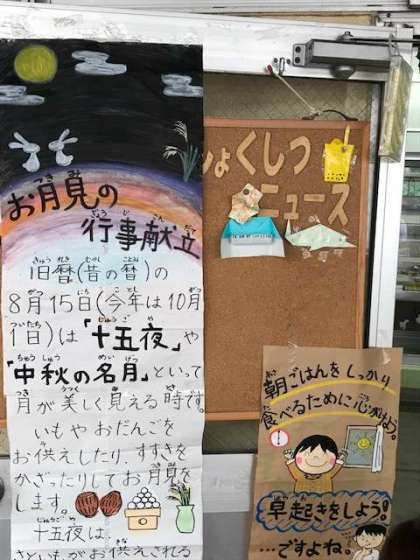 お月見の
行事献立
旧暦(昔の暦)の
8月15日(今年は10月
1日)は「十五夜」や
「中秋の名月」といって
月が美しく見える時です。
いもやおだんごを
お供えしたり、すすきを
かざったりしてお月見を
します。
十五夜は
さといもがお供えされる
しょくしつ
ニュース
朝ごはんをしっかり
食べるために心がけよう。
早起きをしよう!
…ですよね